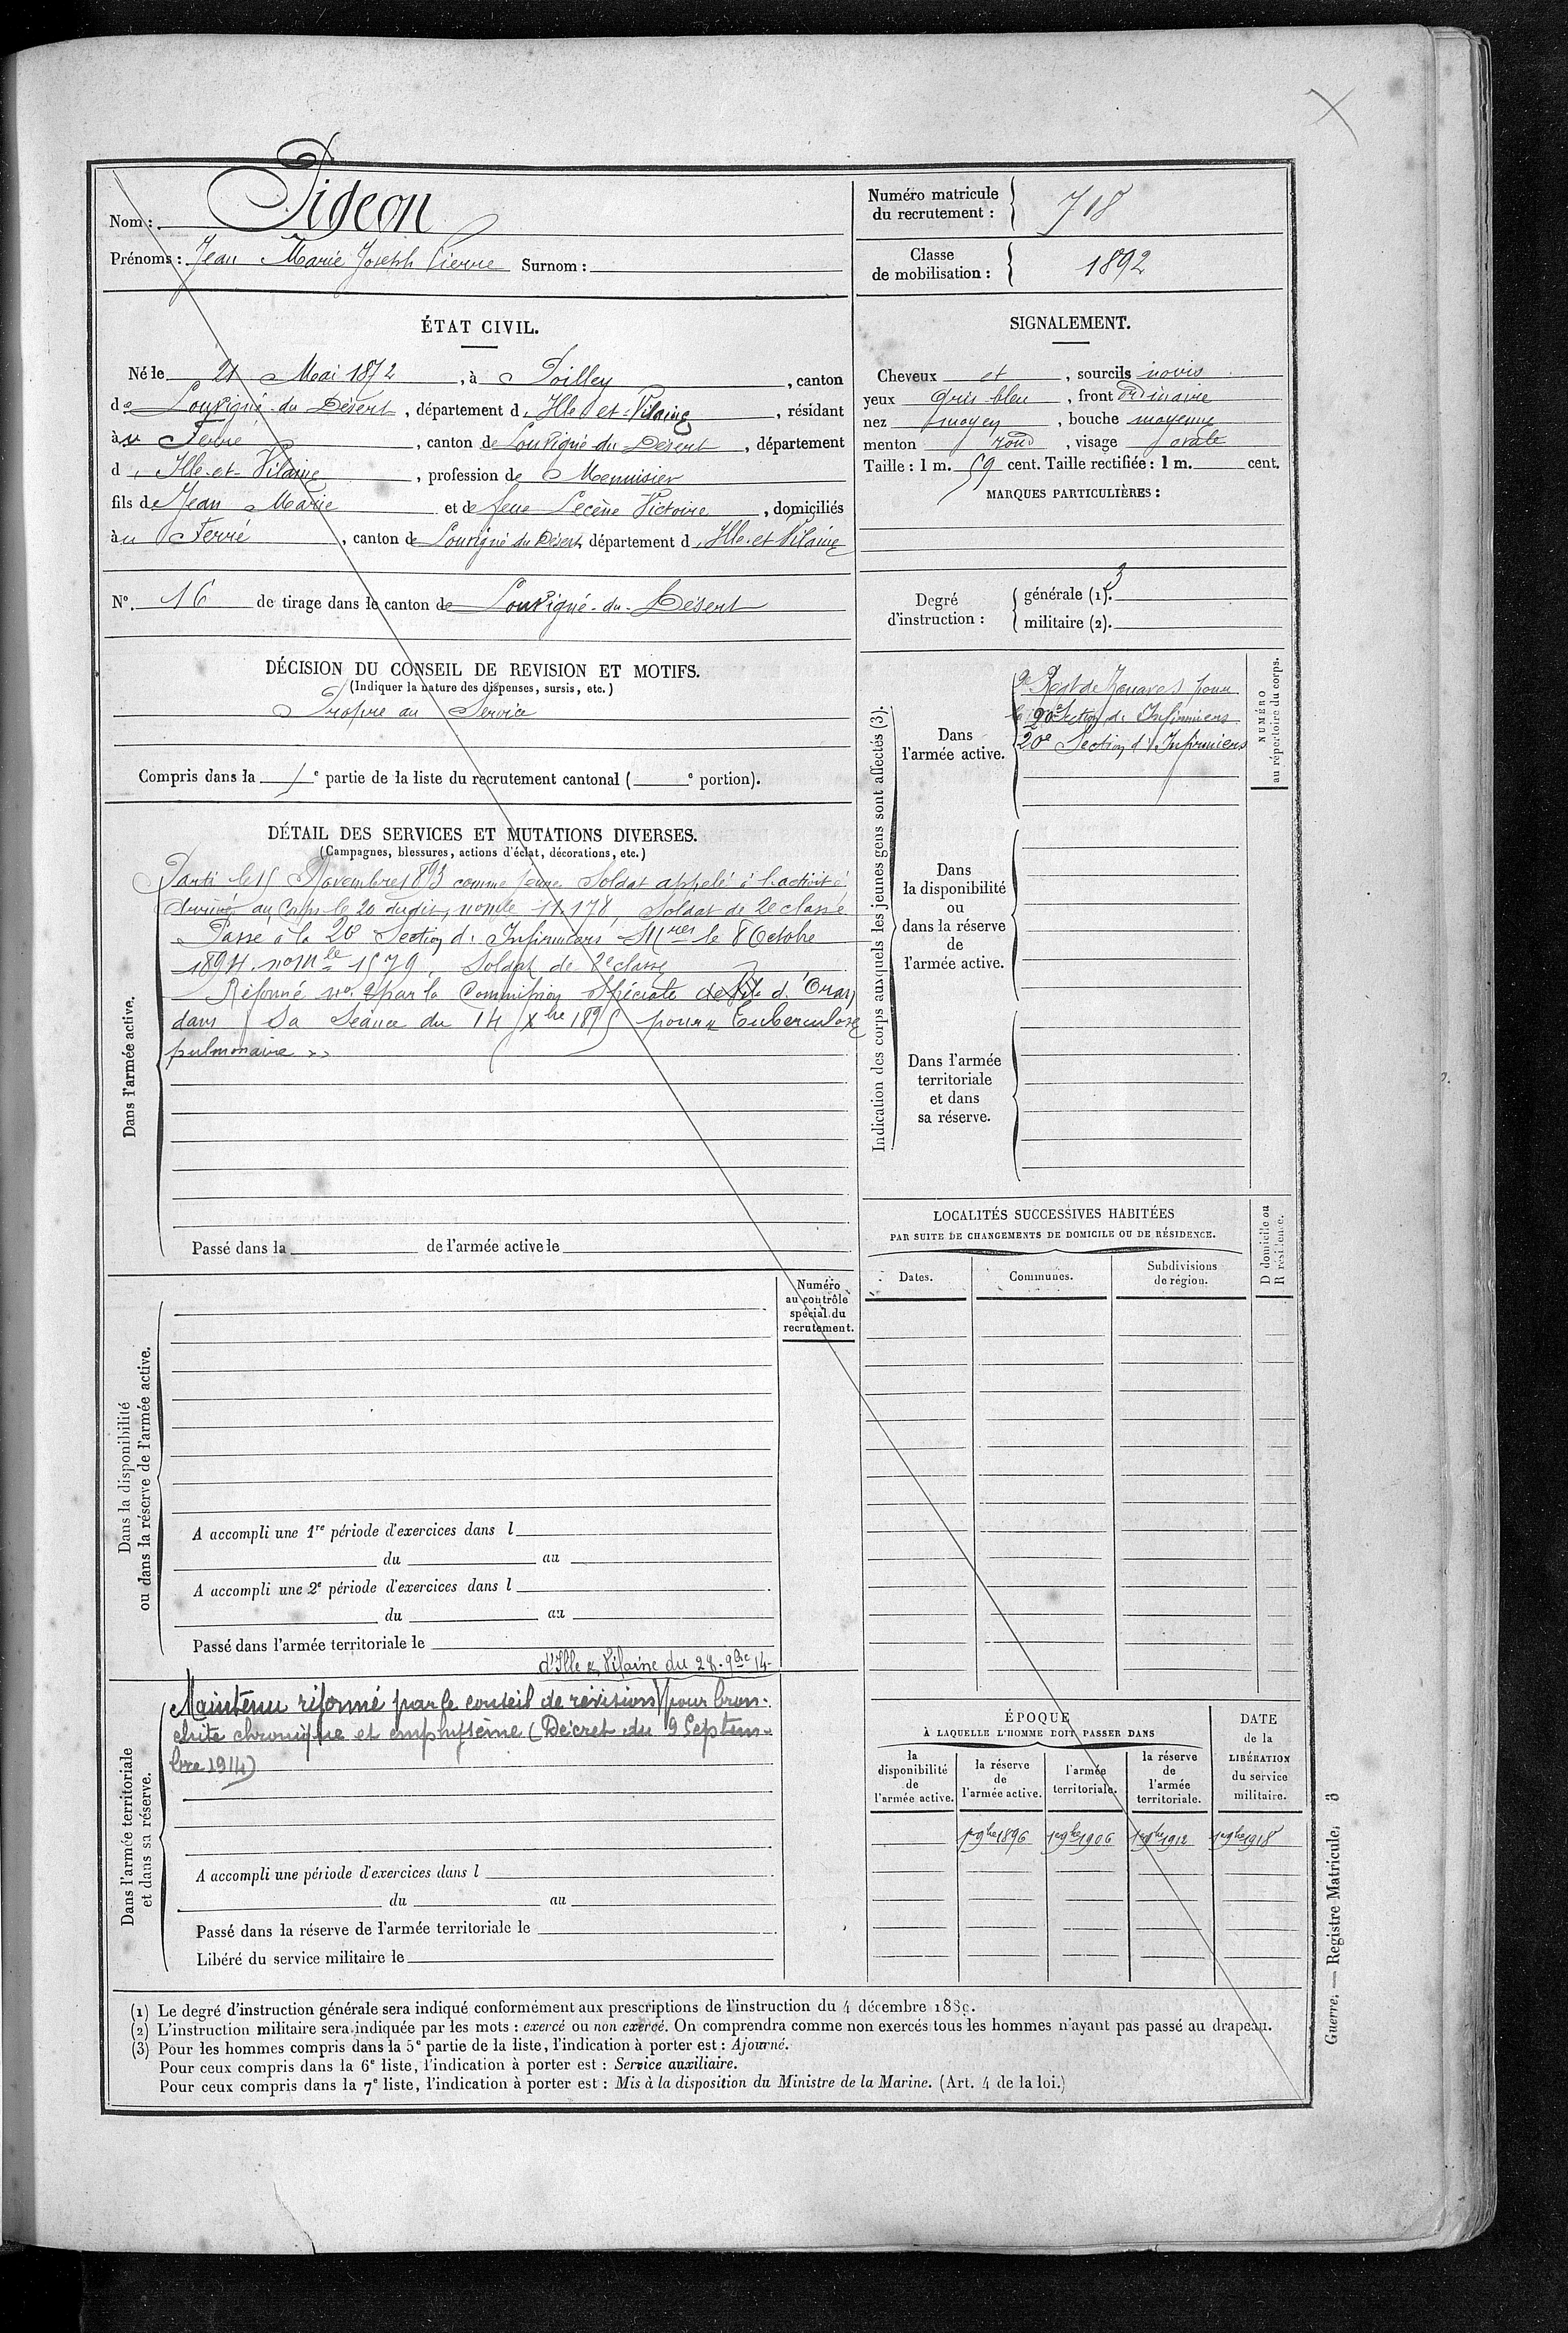 Nom : Pigeon
Prénoms : Jean Marie Joseph Pierre Surnom :
Numéro matricule
du recrutement : 718
Classe
de mobilisation : 1892
ÉTAT CIVIL.
Né le 21 Mai 1872, à Poilley, canton
de Louvigné-du-Désert, département d'Ille-et-Vilaine, résidant
au Ferré, canton de Louvigné du Désert, département
d'Ille-et-Vilaine, profession de Menuisier
fils de Jean Marie et de feue Lecène Victoire, domiciliés
au Ferré, canton de Louvigné du Désert, département d'Ille-et-Vilaine
N° 16 de tirage dans le canton de Louvigné-du-Désert
SIGNALEMENT.
Cheveux et, sourcils noirs
yeux gris bleu, front ordinaire
nez moyen, bouche moyenne
menton rond, visage ovale
Taille : 1 m. 59 cent. Taille rectifiée : 1 m. cent.
MARQUES PARTICULIÈRES :
Degré
d'instruction :
générale (1). 3
militaire (2).
DÉCISION DU CONSEIL DE REVISION ET MOTIFS.
(Indiquer la nature des dispenses, sursis, etc.)
Propre au Service
Compris dans la 1e partie de la liste du recrutement cantonal ( e portion).
DÉTAIL DES SERVICES ET MUTATIONS DIVERSES.
(Campagnes, blessures, actions d'éclat, décorations, etc.)
Dans l'armée active.
Parti le 15 Novembre 1893 comme jeune Soldat appelé à l'activité
Arrivé au Corps le 20 dudit, nomle 11.178, Soldat de 2e classe
Passé à la 20e Section d'Infirmiers Mres le 8 Octobre
1894. no mle 1579, Soldat de 2e classe
Réformé no 2 par la Commission Spéciale d'Oran
dans Sa Séance du 14 Xbre 1895 pour " Tuberculose
pulmonaire ""
Passé dans la de l'armée active le
Indication des corps auxquels les jeunes gens sont affectés (3).
NUMÉRO
au répertoire du corps.
Dans
l'armée active.
2e Régt de Zouaves pour
la 20e Section d'Infirmiers
20e Section d'Infirmiers
Dans
la disponibilité
ou
dans la réserve
de
l'armée active.
Dans l'armée
territoriale
et dans
sa réserve.
LOCALITÉS SUCCESSIVES HABITÉES
PAR SUITE DE CHANGEMENTS DE DOMICILE OU DE RÉSIDENCE.
Dates.
Communes.
Subdivisions
de région.
D domicile ou
R résidence.
Dans la disponibilité
ou dans la réserve de l'armée active.
Numéro
au contrôle
spécial du
recrutement.
A accompli une 1re période d'exercices dans l
du au
A accompli une 2e période d'exercices dans l
du au
Passé dans l'armée territoriale le
Dans l'armée territoriale
et dans sa réserve.
d'Ille & Vilaine du 28. 9bre 14
Maintenu réformé par le conseil de révision pour bron-
chite chronique et emphysème (Décret du 9 Septem-
bre 1914)
A accompli une période d'exercices dans l
du au
Passé dans la réserve de l'armée territoriale le
Libéré du service militaire le
ÉPOQUE
À LAQUELLE L'HOMME DOIT PASSER DANS
la
disponibilité
de
l'armée active.
la réserve
de
l'armée active.
l'armée
territoriale.
la réserve
de
l'armée
territoriale.
DATE
de la
LIBÉRATION
du service
militaire.
1er 9bre 1896 1er 9bre 1906 1er 9bre 1912 1er 9bre 1918
(1) Le degré d'instruction générale sera indiqué conformément aux prescriptions de l'instruction du 4 décembre 1889.
(2) L'instruction militaire sera indiquée par les mots : exercé ou non exercé. On comprendra comme non exercés tous les hommes n'ayant pas passé au drapeau.
(3) Pour les hommes compris dans la 5e partie de la liste, l'indication à porter est : Ajourné.
Pour ceux compris dans la 6e liste, l'indication à porter est : Service auxiliaire.
Pour ceux compris dans la 7e liste, l'indication à porter est : Mis à la disposition du Ministre de la Marine. (Art. 4 de la loi.)
Guerre. — Registre Matricule. 3